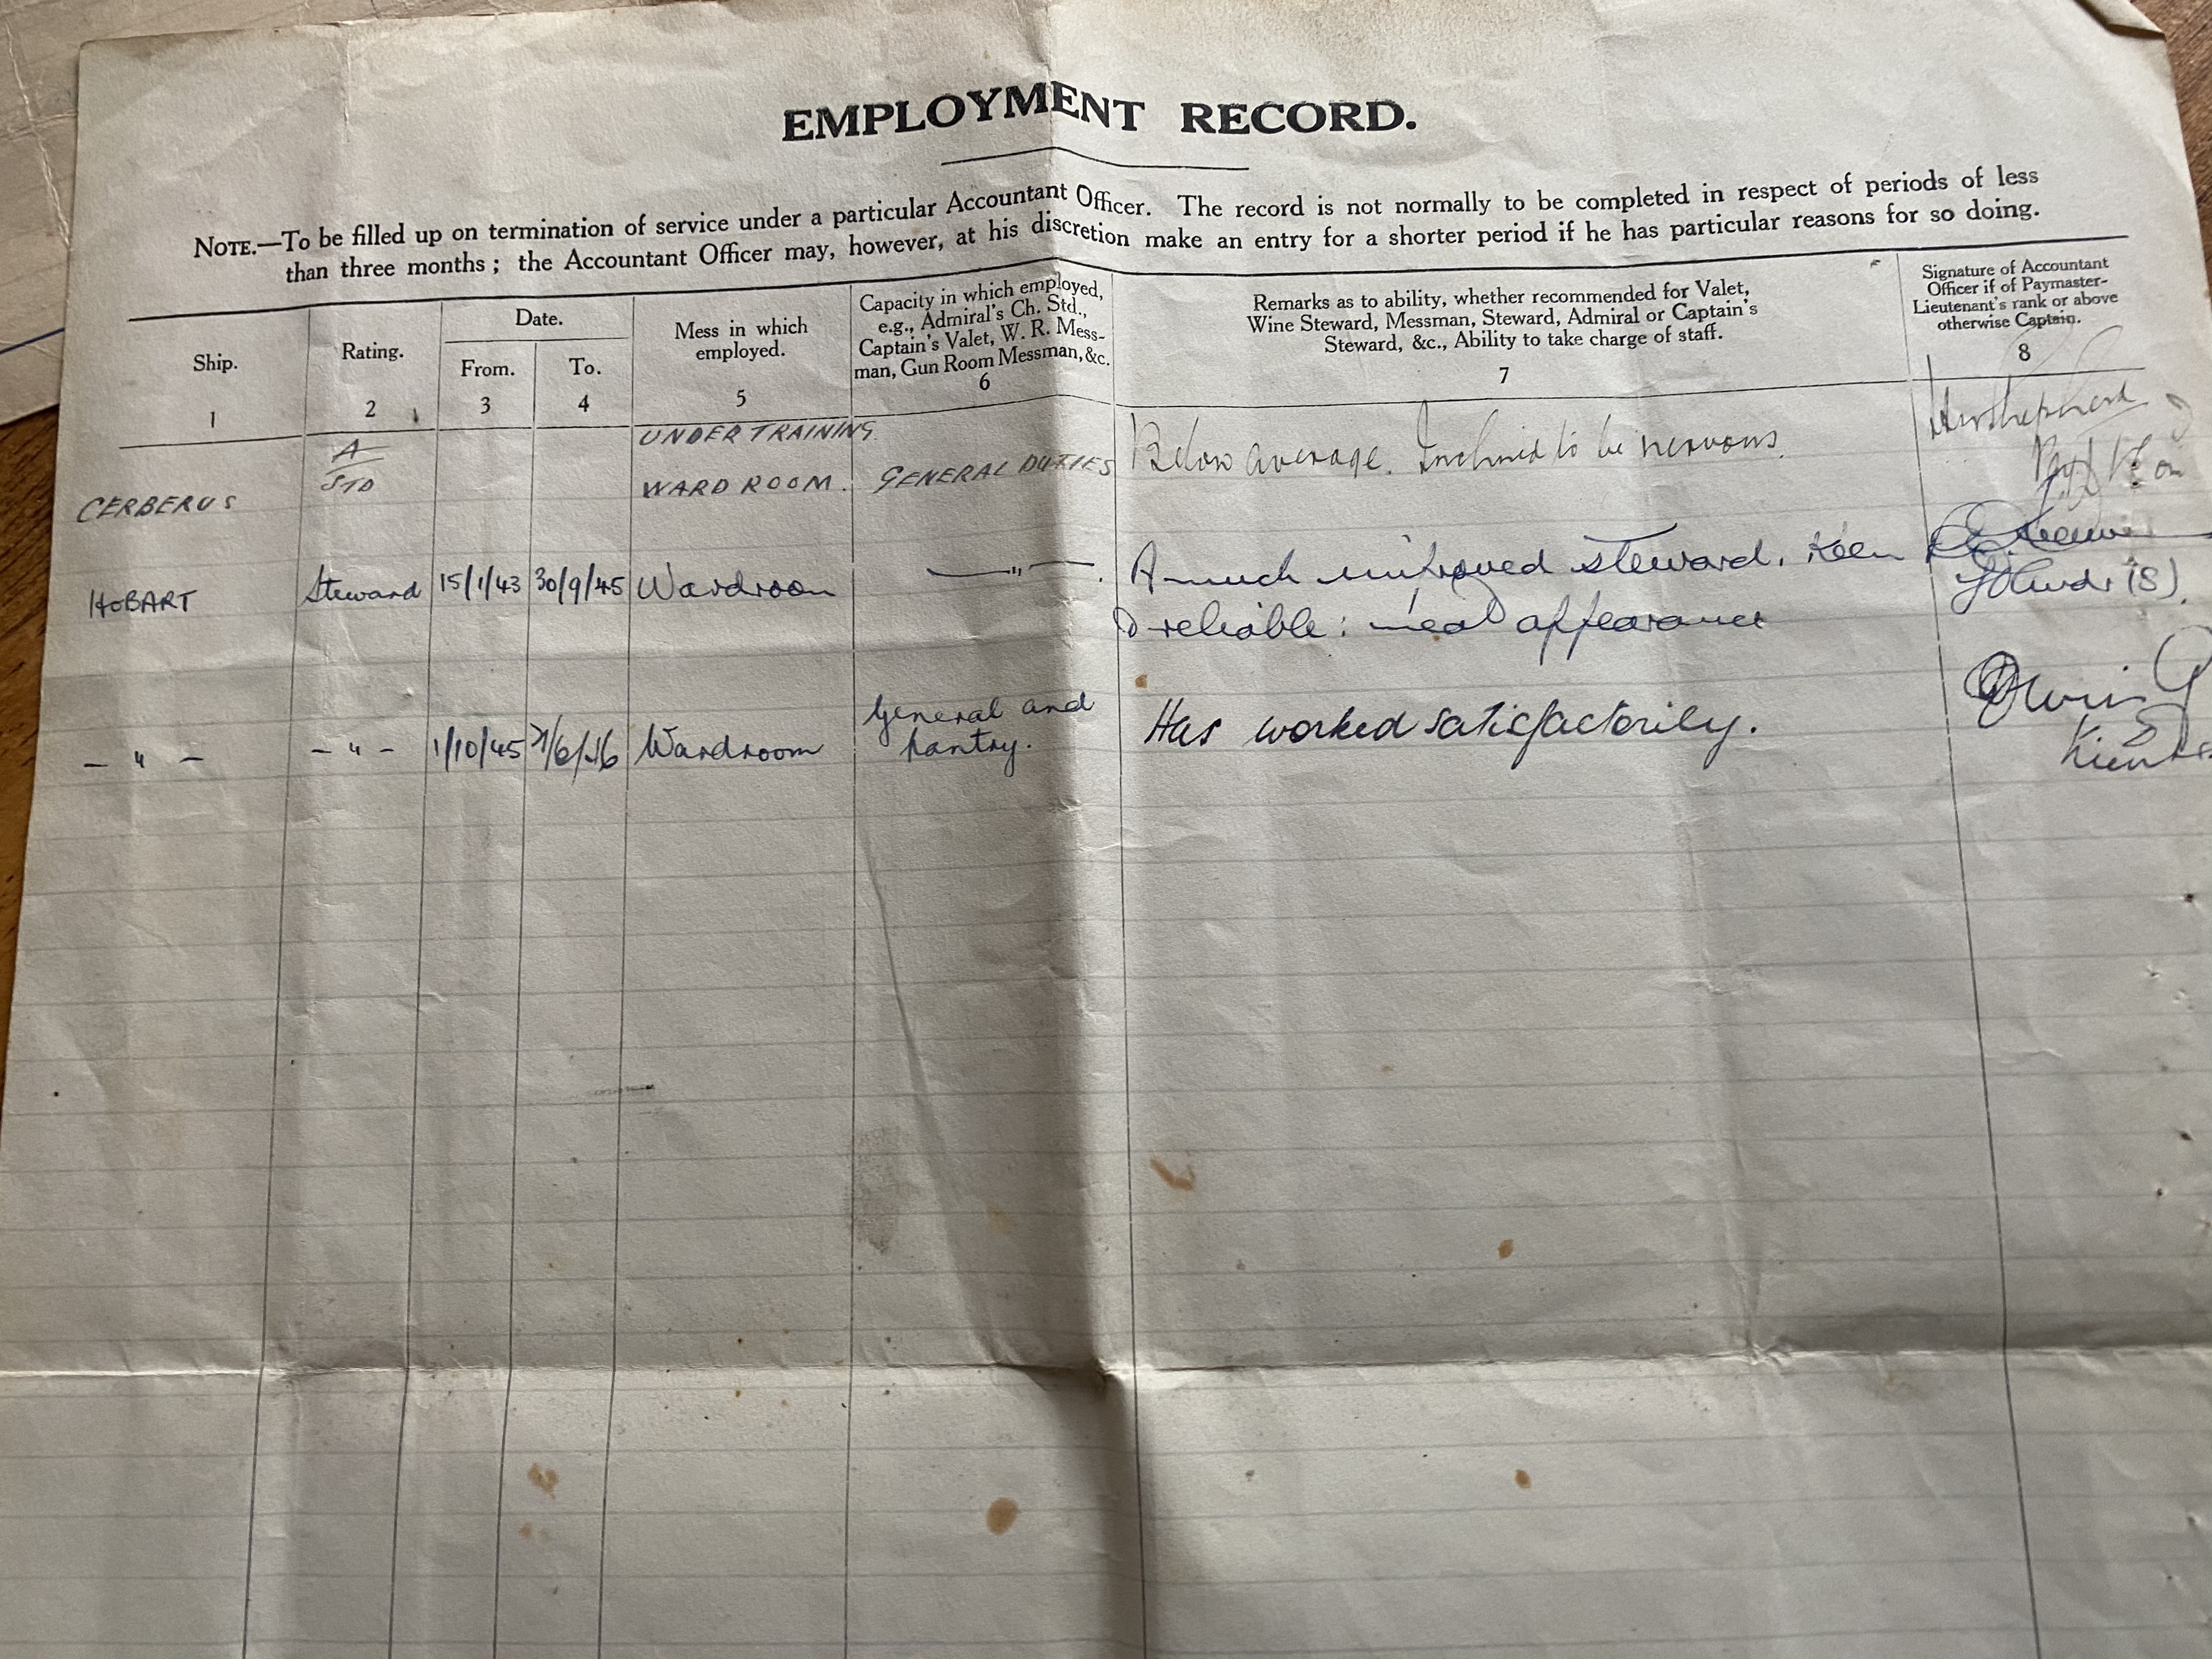 EMPLOYMENT RECORD.
NOTE.—To be filled up on termination of service under a particular Accountant Officer. The record is not normally to be completed in respect of periods of less
than three months; the Accountant Officer may, however, at his discretion make an entry for a shorter period if he has particular reasons for so doing.
Ship.
1
Rating.
2
Date.
From.
3
To.
4
Mess in which
employed.
5
Capacity in which employed,
e.g., Admiral's Ch. Std.,
Captain's Valet, W. R. Mess-
man, Gun Room Messman, &c.
6
Remarks as to ability, whether recommended for Valet,
Wine Steward, Messman, Steward, Admiral or Captain's
Steward, &c., Ability to take charge of staff.
7
Signature of Accountant
Officer if of Paymaster-
Lieutenant's rank or above
otherwise Captain.
8
CERBERUS
A
STD
UNDER TRAINING
WARD ROOM.
GENERAL DUTIES
Below average. Inclined to be nervous.
HOBART
Steward
15/1/43
30/9/45
Wardroom
— " —
A much improved steward. Keen
& reliable: neat appearance
(S).
— " —
— " —
1/10/45
/6/46
Wardroom
General and
pantry.
Has worked satisfactorily.